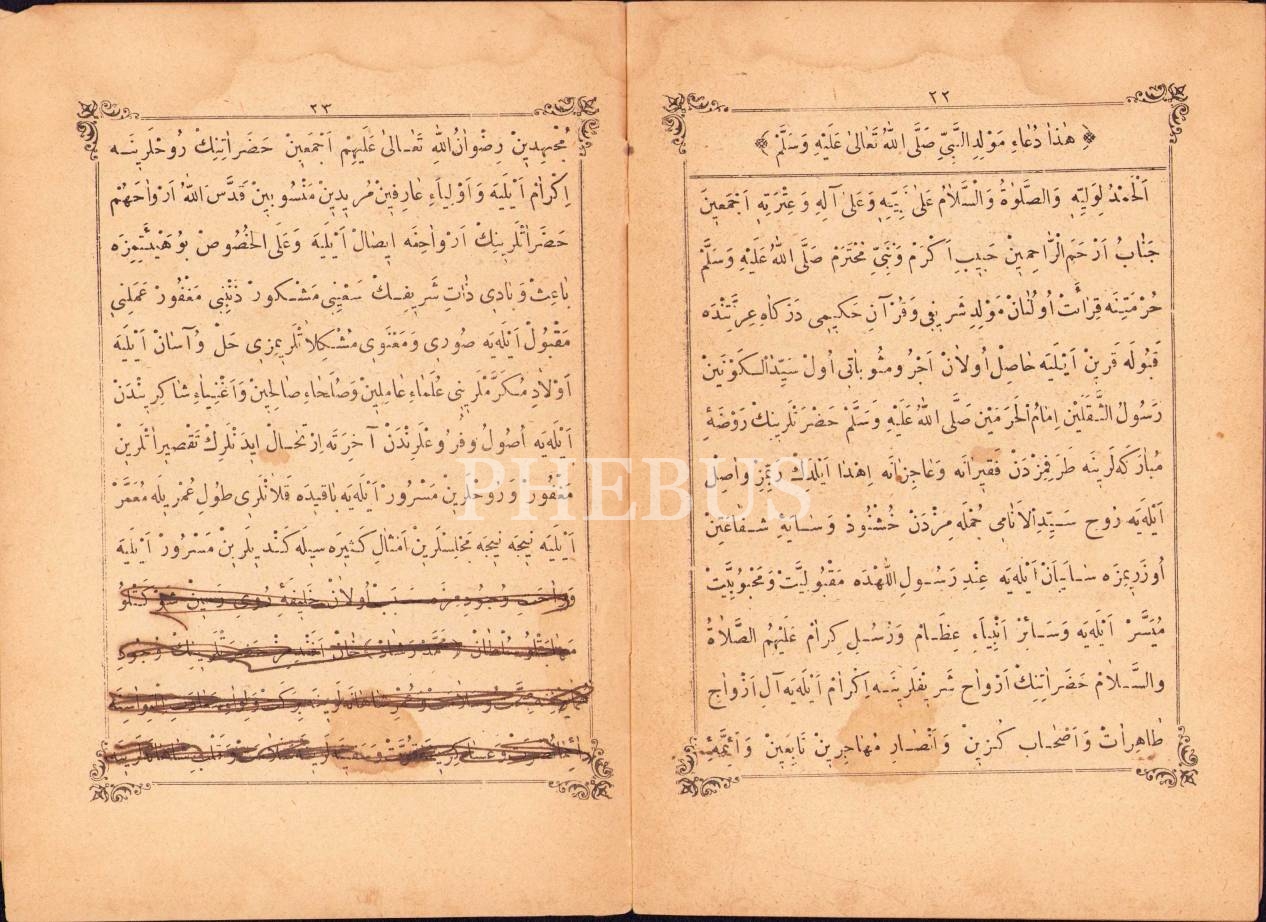 ٢٢
﴿ هٰذَا دُعَاءِ مَوْلِدِ النَّبِيِّ صَلَّى اللهُ تَعَالىٰ عَلَيْهِ وَسَلَّمْ ﴾
اَلْحَمْدُ لِوَلِيِّهِ وَالصَّلٰوةُ وَالسَّلَامُ عَلىٰ نَبِيِّهِ وَعَلىٰ آلِهِ وَعِتْرَتِهِ اَجْمَعِينَ
جَنَابُ اَرْحَمَ الرَّاحِمِينْ حَبِيبِ اَكْرَمْ وَنَبِيِّ مُحْتَرَمْ صَلَّى اللهُ عَلَيْهِ وَسَلَّمْ
حُرْمَتِنَه قِرَائَتْ اُولُنَانْ مَوْلِدِ شَرِيفِى وَقُرْآنِ حَكِيمِى دَرْكَاهِ عِزَّتِنْدَه
قَبُولَه قَرِينْ اَيْلَيَه حَاصِلْ اُولَانْ اَجْرُ وَمَثُوبَاتِى اُولْ سَيِّدُ الْكَوْنَيْنْ
رَسُولُ الثَّقَلَيْنْ اِمَامُ الْحَرَمَيْنْ صَلَّى اللهُ عَلَيْهِ وَسَلَّمْ حَضْرَتْلَرِينِكْ رَوْضَهٔ
مُبَارَكَه لَرِينَه طَرَفِمِزْدَنْ فَقِيرَانَه وَعَاجِزَانَه اِهْدَا اَيْلَدِكْ رَبِّمِزْ وَاصِلْ
اَيْلَيَه رُوحِ سَيِّدِ الْاَنَامِى جُمْلَه مِزْدَنْ خُشْنُودْ وَسَايَهٔ شَفَاعَتِينْ
اُوزَرِيمِزَه سَايَبَانْ اَيْلَيَه عِنْدِ رَسُولِ اللهْدَه مَقْبُولِيَّتْ وَمَحْبُوبِيَّتْ
مُيَسَّرْ اَيْلَيَه وَسَائِرْ اَنْبِيَاءِ عِظَامْ وَرُسُلِ كِرَامْ عَلَيْهِمُ الصَّلَاةُ
وَالسَّلَامْ حَضَرَاتِنِكْ اَرْوَاحِ شَرِيفَلَرِينَه اِكْرَامْ اَيْلَيَه آلِ اَزْوَاجِ
طَاهِرَاتْ وَاَصْحَابِ كُزِينْ وَاَنْصَارِ مُهَاجِرِينْ تَابِعِينْ وَاَئِمَّهٔ
٢٣
مُجْتَهِدِينْ رِضْوَانُ اللهِ تَعَالىٰ عَلَيْهِمْ اَجْمَعِينْ حَضَرَاتِنِكْ رُوحْلَرِينَه
اِكْرَامْ اَيْلَيَه وَاَوْلِيَاءِ عَارِفِينْ مُرِيدِينْ مَنْسُوبِينْ قَدَّسَ اللهُ اَرْوَاحَهُمْ
حَضَرَاتْلَرِينِكْ اَرْوَاحِنَه اِيصَالْ اَيْلَيَه وَعَلَى الْخُصُوصْ بُو هَيْئَتِمِزَه
بَاعِثْ وَبَادِى ذَاتِ شَرِيفِكْ سَعْيِنِى مَشْكُورْ ذَنْبِنِى مَغْفُورْ عَمَلِنِى
مَقْبُولْ اَيْلَيَه صُورِى وَمَعْنَوِى مُشْكِلَاتْلَرِيمِزِى حَلْ وَآسَانْ اَيْلَيَه
اَوْلَادِ مُكَرَّمْلَرِنِى عُلَمَاءِ عَامِلِينْ وَصُلَحَاءِ صَالِحِينْ وَاَغْنِيَاءِ شَاكِرِينْدَنْ
اَيْلَيَه اُصُولُ وَفُرُوعْلَرِنْدَنْ آخِرَتَه اِرْتِحَالْ اِيدَنْلَرِكْ تَقْصِيرَاتْلَرِينْ
مَغْفُورْ وَرُوحْلَرِينْ مَسْرُورْ اَيْلَيَه بَاقِيدَه قَلَانْلَرِى طُولِ عُمْرِيلَه مُعَمَّرْ
اَيْلَيَه نِيجَه نِيجَه مَجْلِسْلَرِينْ اَمْثَالِ كَثِيرَه سِيلَه كَنْدِيلَرِينْ مَسْرُورْ اَيْلَيَه
اُولَانْ خَلِيفَهٔ
سُلْطَانْ (مُحَمَّدْ رَشَادْ) خَانْ